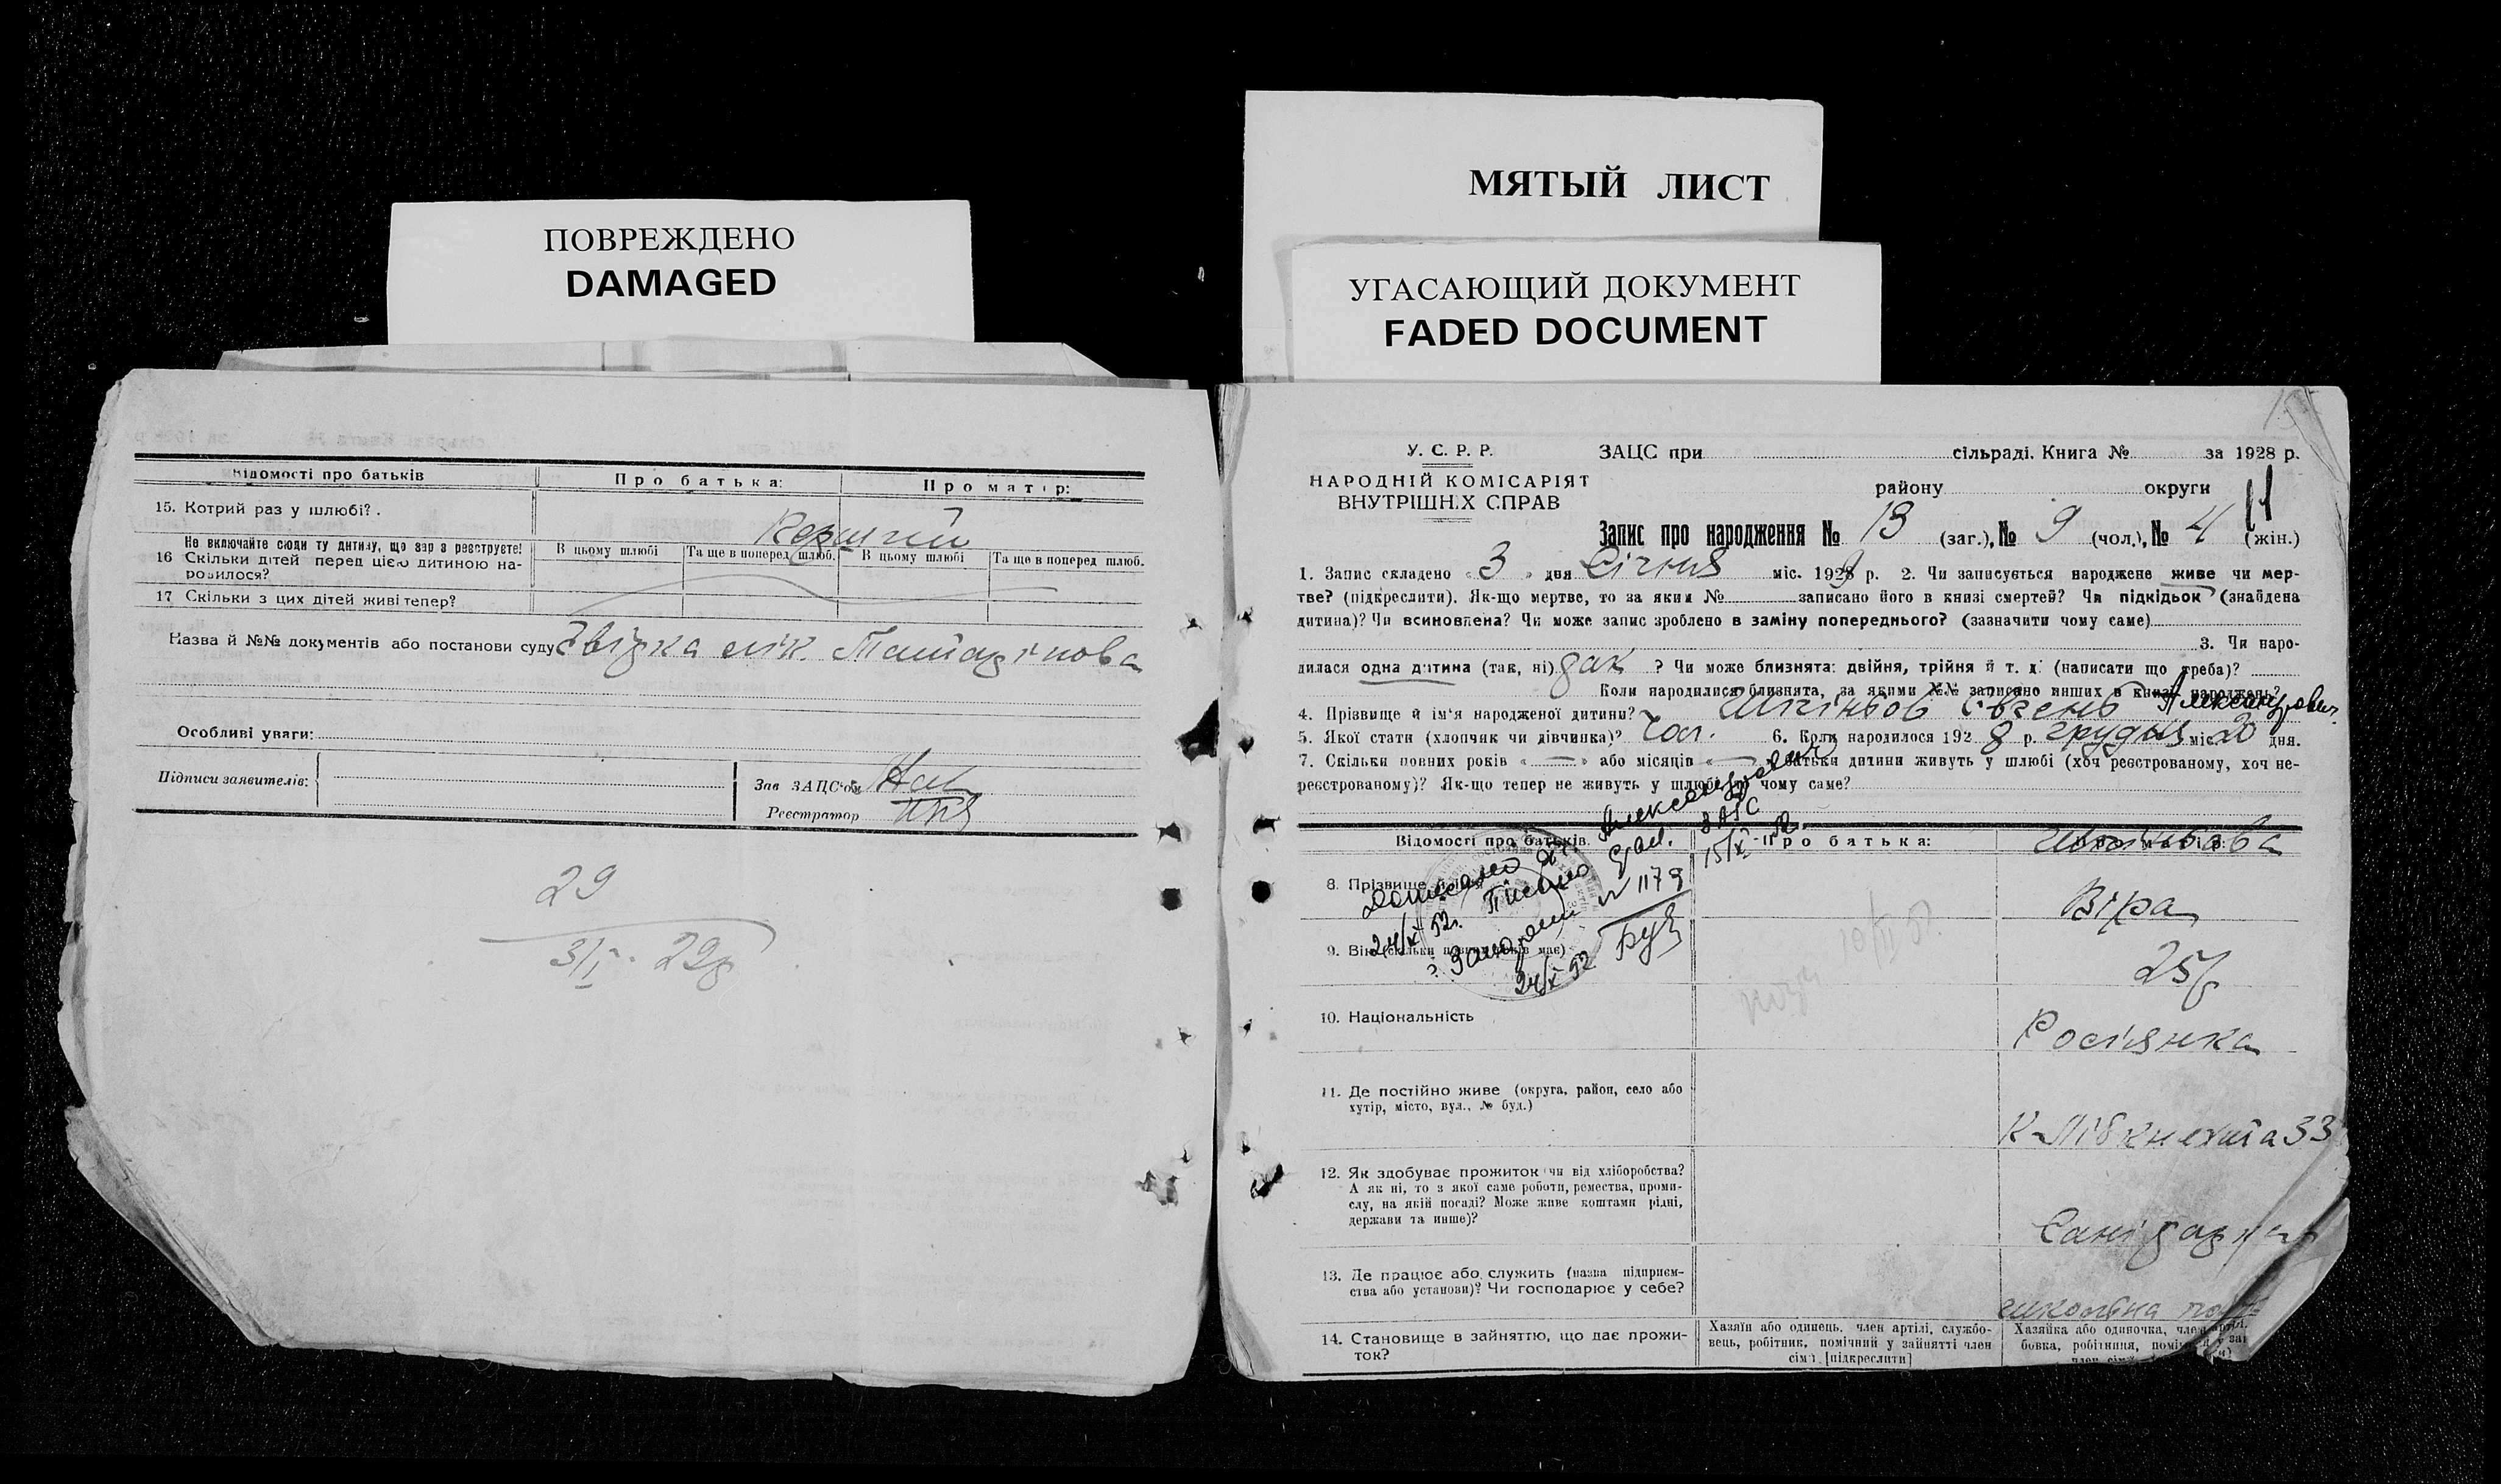 ПОВРЕЖДЕНО
DAMAGED
МЯТЫЙ ЛИСТ
УГАСАЮЩИЙ ДОКУМЕНТ
FADED DOCUMENT
Відомості про батьків
Про батька:
Про матір:
15. Котрий раз у шлюбі?.
Не включайте сюди ту дитину, що зараз реєструєте!
16 Скільки дітей перед цією дитиною на-
родилося?
В цьому шлюбі
Та ще в поперед шлюб.
В цьому шлюбі
Та ще в поперед шлюб.
17 Скільки з цих дітей живі тепер?
Назва й №№ документів або постанови суду
Особливі уваги:
Підписи заявителів:
Зав ЗАЦС'ом
Реєстратор
29
3/I- 29р
У. С. Р. Р.
НАРОДНІЙ КОМІСАРІЯТ
ВНУТРІШНІХ СПРАВ
ЗАЦС при сільраді. Книга № за 1928 р.
району округи
Запис про народження № 13 (заг.), № 9 (чол.), № 4 (жін.)
1. Запис складено « 3 » дня Січня міс. 1929 р. 2. Чи записується народжене живе чи мер-
тве? (підкреслити). Як-що мертве, то за яким № записано його в книзі смертей? Чи підкідьок (знайдена
дитина)? Чи всиновлена? Чи може запис зроблено в заміну попереднього? (зазначити чому саме)
3. Чи наро-
дилася одна дитина (так, ні) так ? Чи може близнята: двійня, трійня й т. д. (написати що треба)?
Коли народилися близнята, за якими №№ записано инших в книзі народжень?
4. Прізвище й ім'я народженої дитини? Євгень Александрович
5. Якої стати (хлопчик чи дівчинка)? Чол. 6. Коли народилося 1928 р. грудня міс. 20 дня.
7. Скільки повних років « — » або місяців « — » батьки дитини живуть у шлюбі (хоч реєстрованому, хоч не-
реєстрованому)? Як-що тепер не живуть у шлюбі, то чому саме?
Відомості про батьків.
Про батька:
Про матір:
Александрович
ЗАГС
15/X-52.
24/X 52г.
№ 1179
24/X 52
8. Прізвище й ім'я
Віра
9. Вік (скільки повних років має)
25р
10. Національність
Росіянка
11. Де постійно живе (округа, район, село або
хутір, місто, вул., № буд.)
К-Лібкнехта 33
12. Як здобуває прожиток (чи від хліборобства?
А як ні, то з якої саме роботи, ремества, проми-
слу, на якій посаді? Може живе коштами рідні,
держави та инше)?
13. Де працює або служить (назва підприєм-
ства або установи)? Чи господарює у себе?
14. Становище в зайняттю, що дає прожи-
ток?
Хазяїн або одинець, член артілі, службо-
вець, робітник, помічний у зайнятті член
сім'ї [підкреслити]
Хазяйка або одиночка, член артілі,
бовка, робітниця,